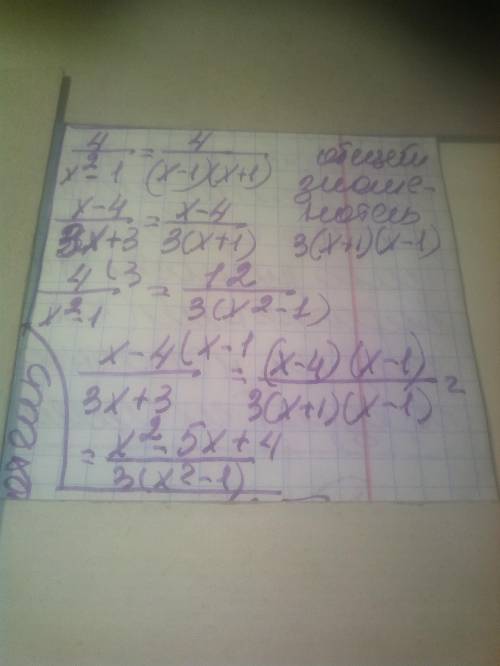 4/(x²-1) = 4/((x-1)(x+1))
общий
знаме-
натель
3(x+1)(x-1)
(x-4)/(3x+3) = (x-4)/(3(x+1))
4(3/(x²-1) = 12/(3(x²-1))
x-4(x-1/(3x+3) = (x-4)(x-1)/(3(x+1)(x-1)) =
= (x²-5x+4)/(3(x²-1))